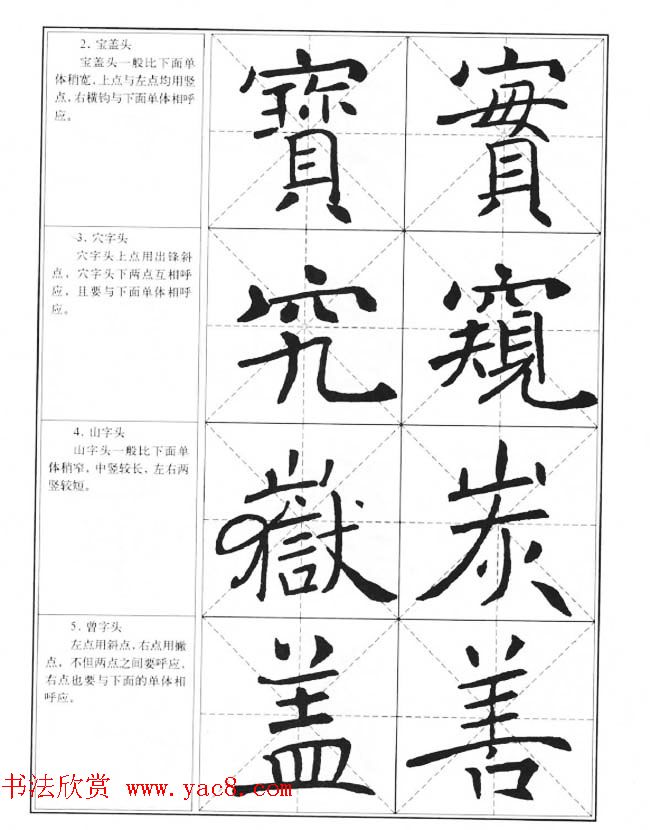 2. 宝盖头
宝盖头一般比下面单
体稍宽,上点与左点均用竖
点,右横钩与下面单体相呼
应。
寶 實
3. 穴字头
穴字头上点用出锋斜
点,穴字头下两点互相呼
应,且要与下面单体相呼
应。
究 窺
4. 山字头
山字头一般比下面单
体稍窄,中竖较长,左右两
竖较短。
嶽 炭
5. 曾字头
左点用斜点,右点用撇
点,不但两点之间要呼应,
右点也要与下面的单体相
呼应。
盖 善
书法欣赏 www.yac8.com